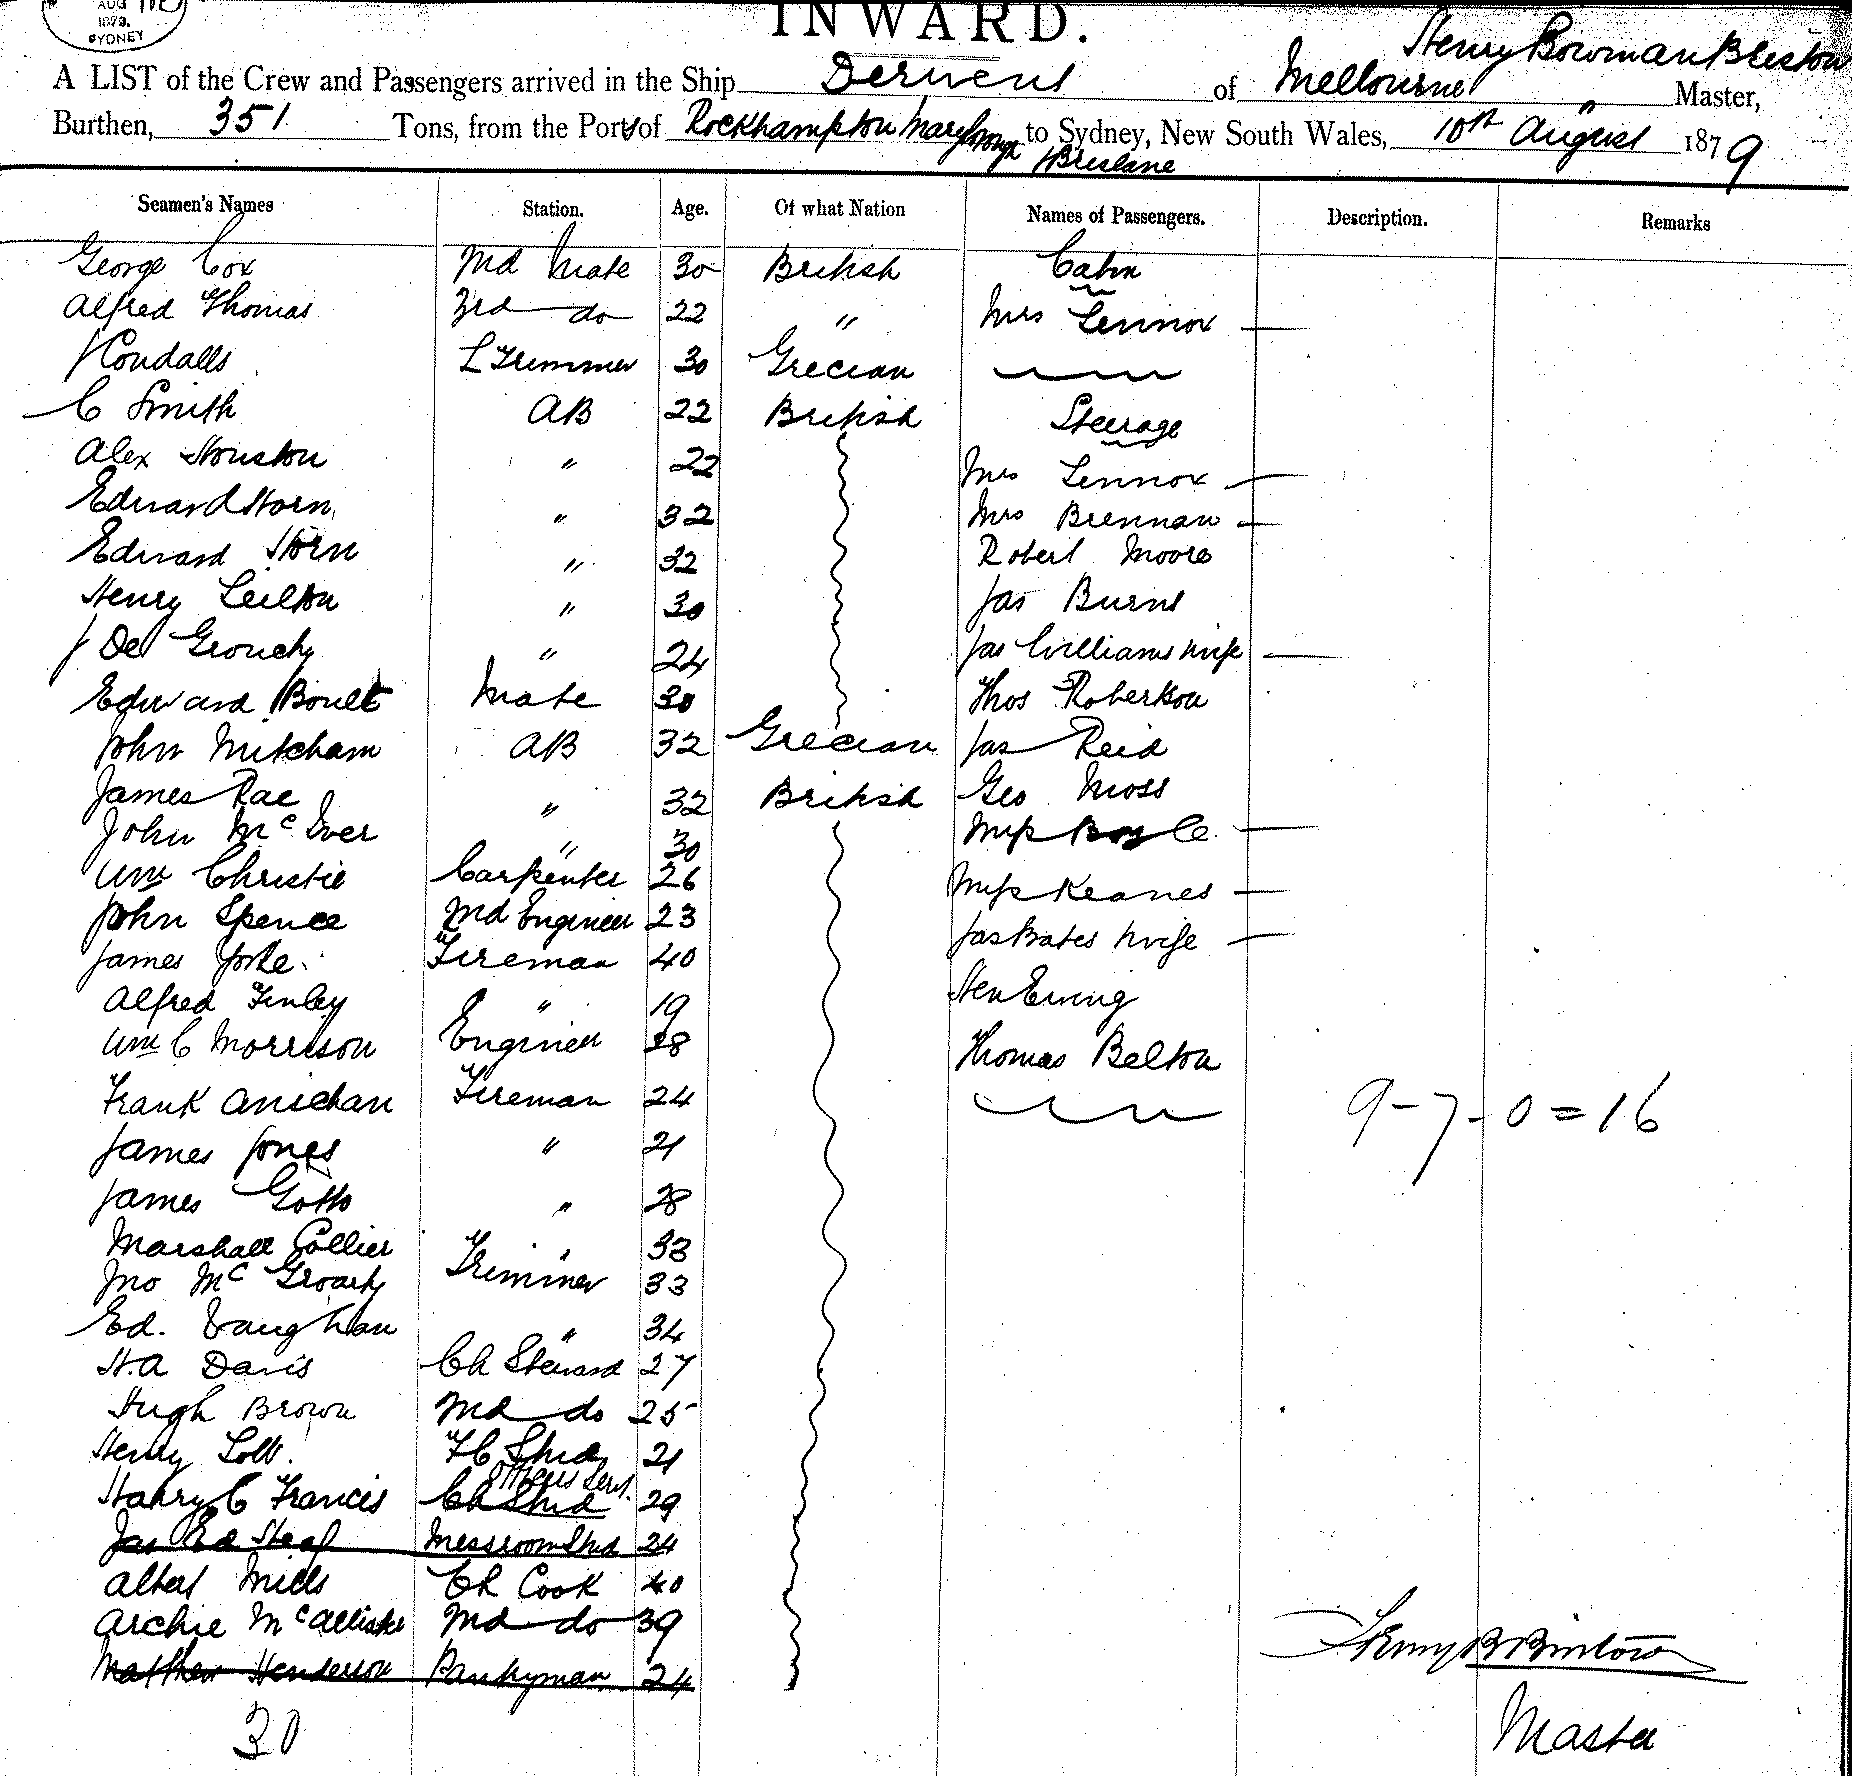 AUG
1879.
SYDNEY
INWARD.
Henry Bowman
A LIST of the Crew and Passengers arrived in the Ship Derwent of Melbourne Master,
Burthen, 351 Tons, from the Port of Rockhampton Maryboro to Sydney, New South Wales, 10th August 1879
Brisbane
Seamen's Names Station. Age. Of what Nation Names of Passengers. Description. Remarks
George Cox 2nd Mate 30 British Cabin
Alfred Thomas 3rd do 22 " Mrs Lennox
L Trimmer 30 Grecian
C Smith AB 22 British Steerage
Alex Houston " 22 Mrs Lennox
Edward Horn " 32 Mrs Brennan
Edward Horn " 32 Robert Moore
Henry " 30 Jas Burns
J De Grouchy " 24 Jas Williams wife
Edward Boult Mate 30 Thos Robertson
John Mitcham AB 32 Grecian Jas Reid
James Rae " 32 British Geo Moss
John McIver " 30 Miss Boyle
Wm Christie Carpenter 26 Miss Keanes
John Spence 2nd Engineer 23 Jas Bates wife
James Fireman 40 Hen Ewing
Alfred Finley " 19
Wm C Morrison Engineer 28 Thomas Belton
Frank Fireman 24 9-7-0=16
James Jones " 21
James Gotto " 28
Marshall Collier " 33
Jno Mc Groarty Trimmer 33
Ed. Vaughan " 34
H.A Davis Ch Steward 27
Hugh Brown 2nd do 25
Henry Lott. FC Stwd 21
Officers Servt.
Harry C Francis Ch Stwd 29
Jas Ed Messroom Stwd 24
Albert Mills Ch Cook 40
Archie McAllister 2nd do 39
Matthew Henderson Pantryman 24
Henry B
30
Master